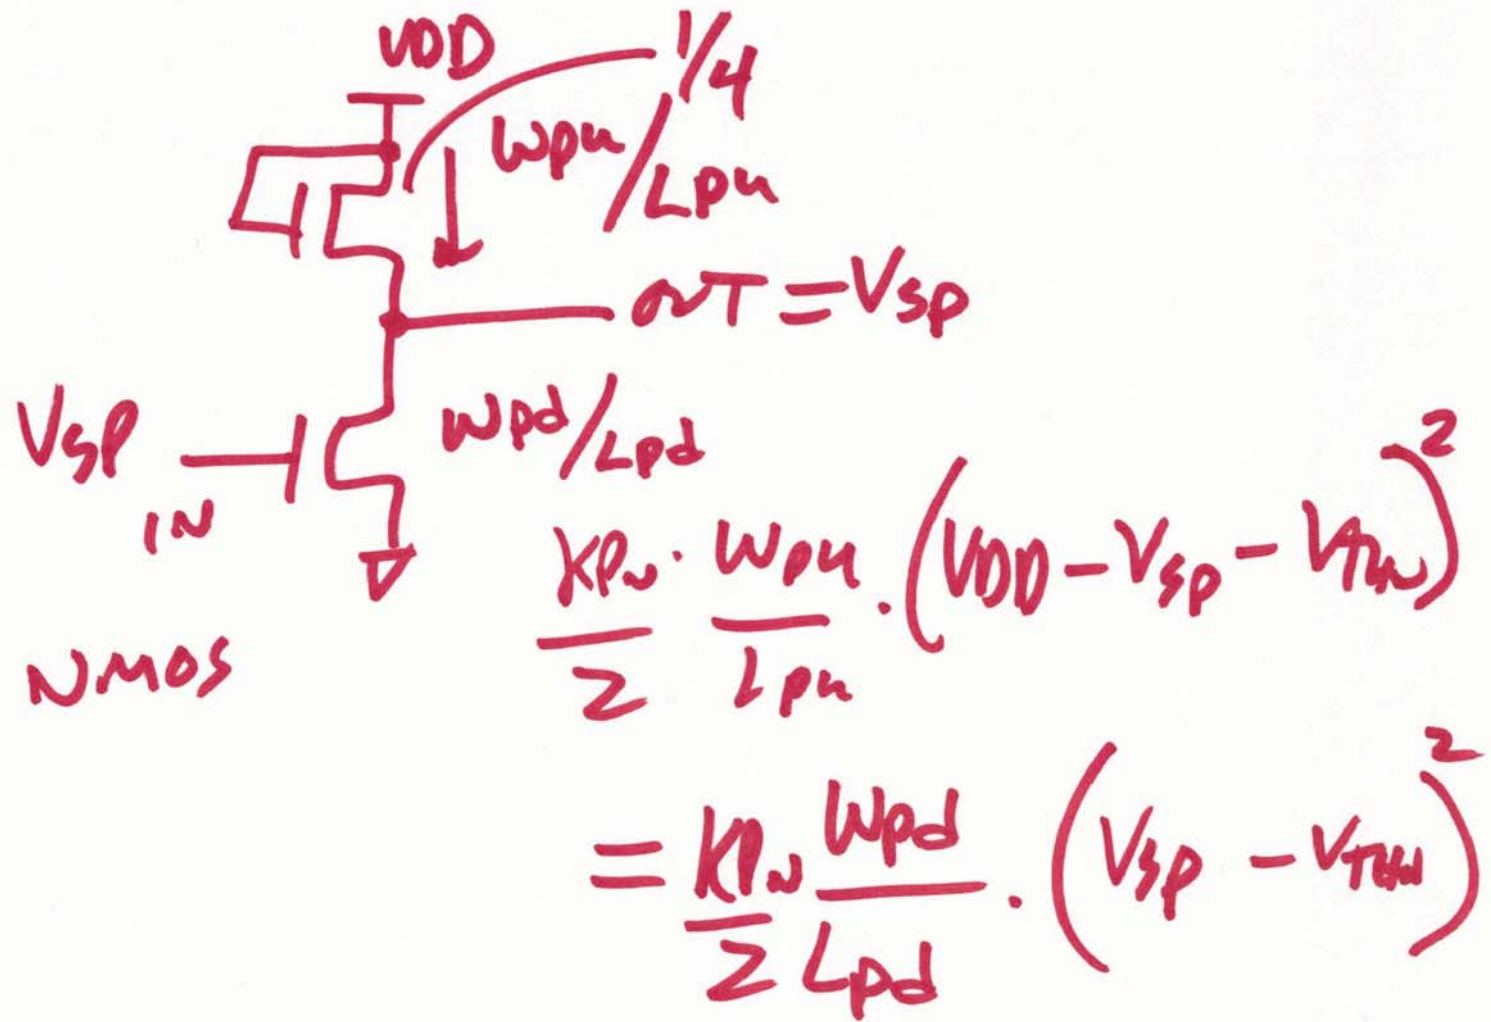 VDD
1/4
Wpu/Lpu
OUT = VSP
VSP
IN
Wpd/Lpd
NMOS
KPN/2 · Wpu/Lpu · (VDD - VSP - VTHN)²
= KPN/2 Wpd/Lpd · (VSP - VTHN)²